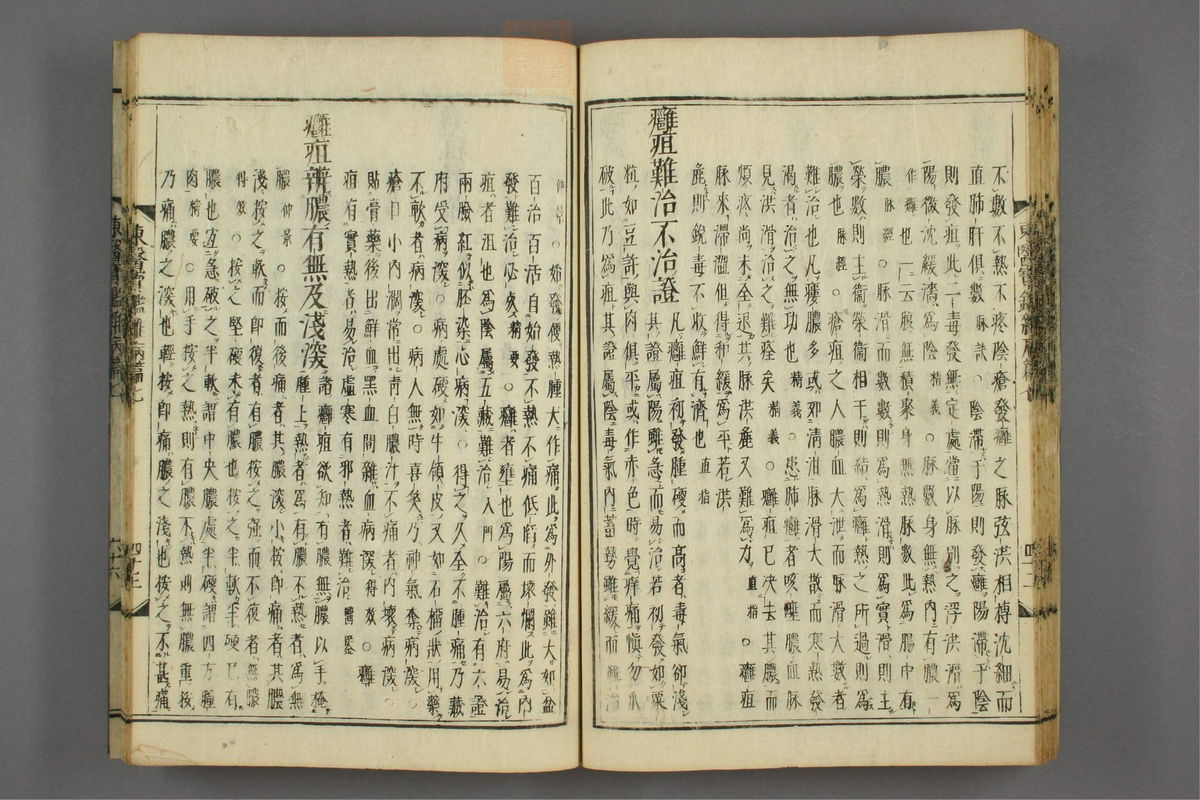 不數不熱不疼陰瘡發癰之脉弦洪相搏沈細而
直肺肝俱數 脉訣 ○陰滯于陽則發癰陽滯于陰
則發疽此二毒發無定處當以脉別之浮洪滑為
陽微沈緩濇為陰 精義 ○脉數身無熱內有膿一
作癰也一云腹無積聚身無熱脉數此為腸中有
膿 脉經 ○脉滑而數數則為熱滑則為實滑則主
榮數則主衛榮衛相干則結為癰熱之所過則為
膿也 脉經 ○瘡疽之人膿血大泄而脉滑大數者
難治也凡瘻膿多或如清泔脉滑大散而寒熱發
渴者治之無功也 精義 ○患肺癰者咳唾膿血脉
見洪滑治之難痊矣 精義 ○癰疽已決去其膿而
煩疼尚未全退其脉洪麁又難為力 直指 ○癰疽
脉來滯澀但得和緩為平若洪
麁則銳毒不收鮮有濟也 直指
癰疽難治不治證
凡癰疽初發腫硬而高者毒氣卻淺
其證屬陽雖急而易治若初發如粟
粒如豆許與肉俱平或作赤色時覺痒痛慎勿爪
破此乃為疽其證屬陰毒氣內蓄勢雖緩而難治
仲景 ○始發便熱腫大作痛此為外發雖大如盆
百治百活自始發不熱不痛低陷而壞爛此為內
發難治必死 精要 ○癰者壅也為陽屬六府易治
疽者沮也為陰屬五藏難治 入門 ○難治有六證
兩臉紅似胚染心病深○得之久全不腫痛乃藏
府受病深○病處硬如牛領皮又如石榴狀用藥
不軟者病深○病人無時喜笑乃神氣耗病深○
瘡口小內濶常出青白膿汁不痛者內壞病深○
貼膏藥後出鮮血黑血間雜血病深 得效 ○癰
疽有實熱者易治虛寒有邪熱者難治 醫鑑
癰疽辨膿有無及淺深
諸癰疽欲知有膿無膿以手掩
腫上熱者為有膿不熱者為無
膿 仲景 ○按而後痛者其膿深小按即痛者其膿
淺按之軟而即復者有膿按之強而不復者無膿
得效 ○按之堅硬未有膿也按之半軟半硬已有
膿也宜急破之半軟謂中央膿處半硬謂四方腫
肉 精要 ○用手按之熱則有膿不熱則無膿重按
乃痛膿之深也輕按即痛膿之淺也按之不甚痛
東醫寶鑑雜病篇七 四十三